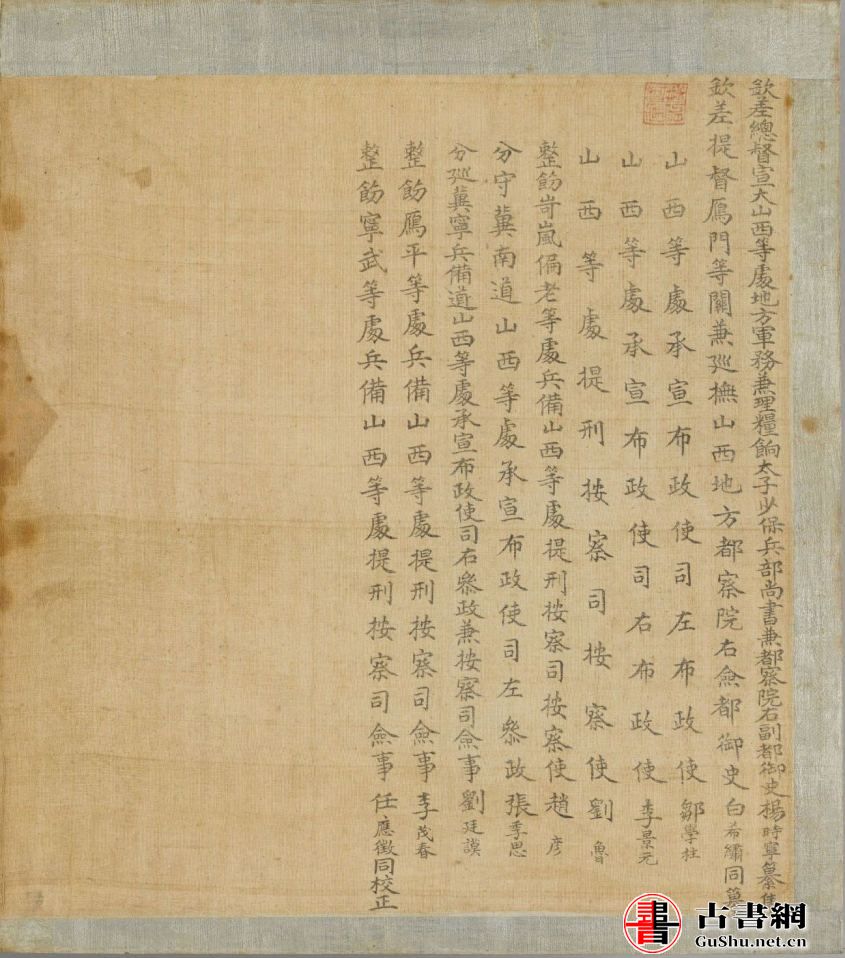 欽差總督宣大山西等處地方軍務兼理糧餉太子少保兵部尚書兼都察院右副都御史楊時寧纂集
欽差提督鴈門等關兼廵撫山西地方都察院右僉都御史白希繡同纂
山西等處承宣布政使司左布政使鄒學柱
山西等處承宣布政使司右布政使李景元
山西等處提刑按察司按察使劉魯
整飭岢嵐偏老等處兵備山西等處提刑按察司按察使趙彦
分守冀南道山西等處承宣布政使司左叅政張季思
分廵冀寧兵備道山西等處承宣布政使司右叅政兼按察司僉事劉廷謨
整飭鴈平等處兵備山西等處提刑按察司僉事李茂春
整飭寧武等處兵備山西等處提刑按察司僉事任應徵同校正
書
古書網
GuShu.net.cn